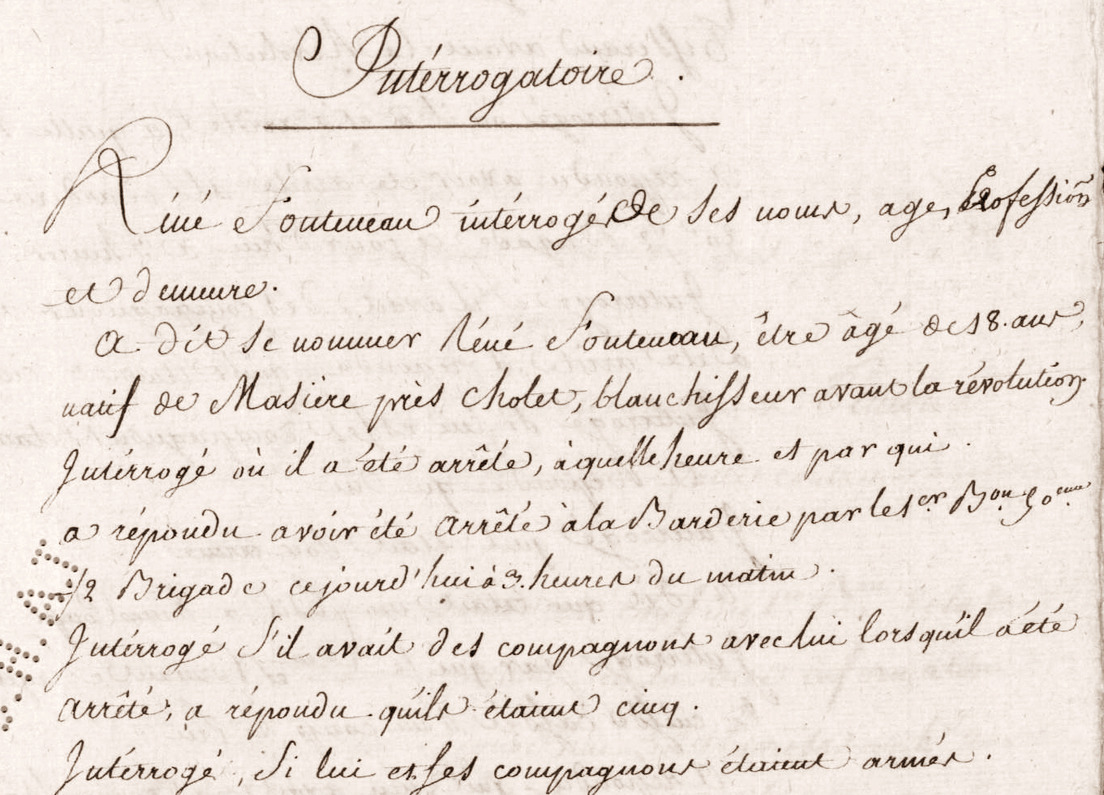 Intérrogatoire.
Réné Fonteneau intérrogé de ses noms, age, Profession
et demeure.
A dit se nommer Réné Fonteneau, être âgé de 18. ans,
natif de Masiere près Cholet, blanchisseur avant la révolution.
Intérrogé où il a été arrêté, à quelle heure et par qui.
a répondu avoir été arrêté à la Barderie par le 1er Bon 50eme
1/2 Brigade cejourd'hui à 3. heures du matin.
Intérrogé s'il avait des compagnons avec lui lorsqu'il a été
arrêté, a répondu qu'ils étaient cinq.
Intérrogé, si lui et ses compagnons étaient armés.